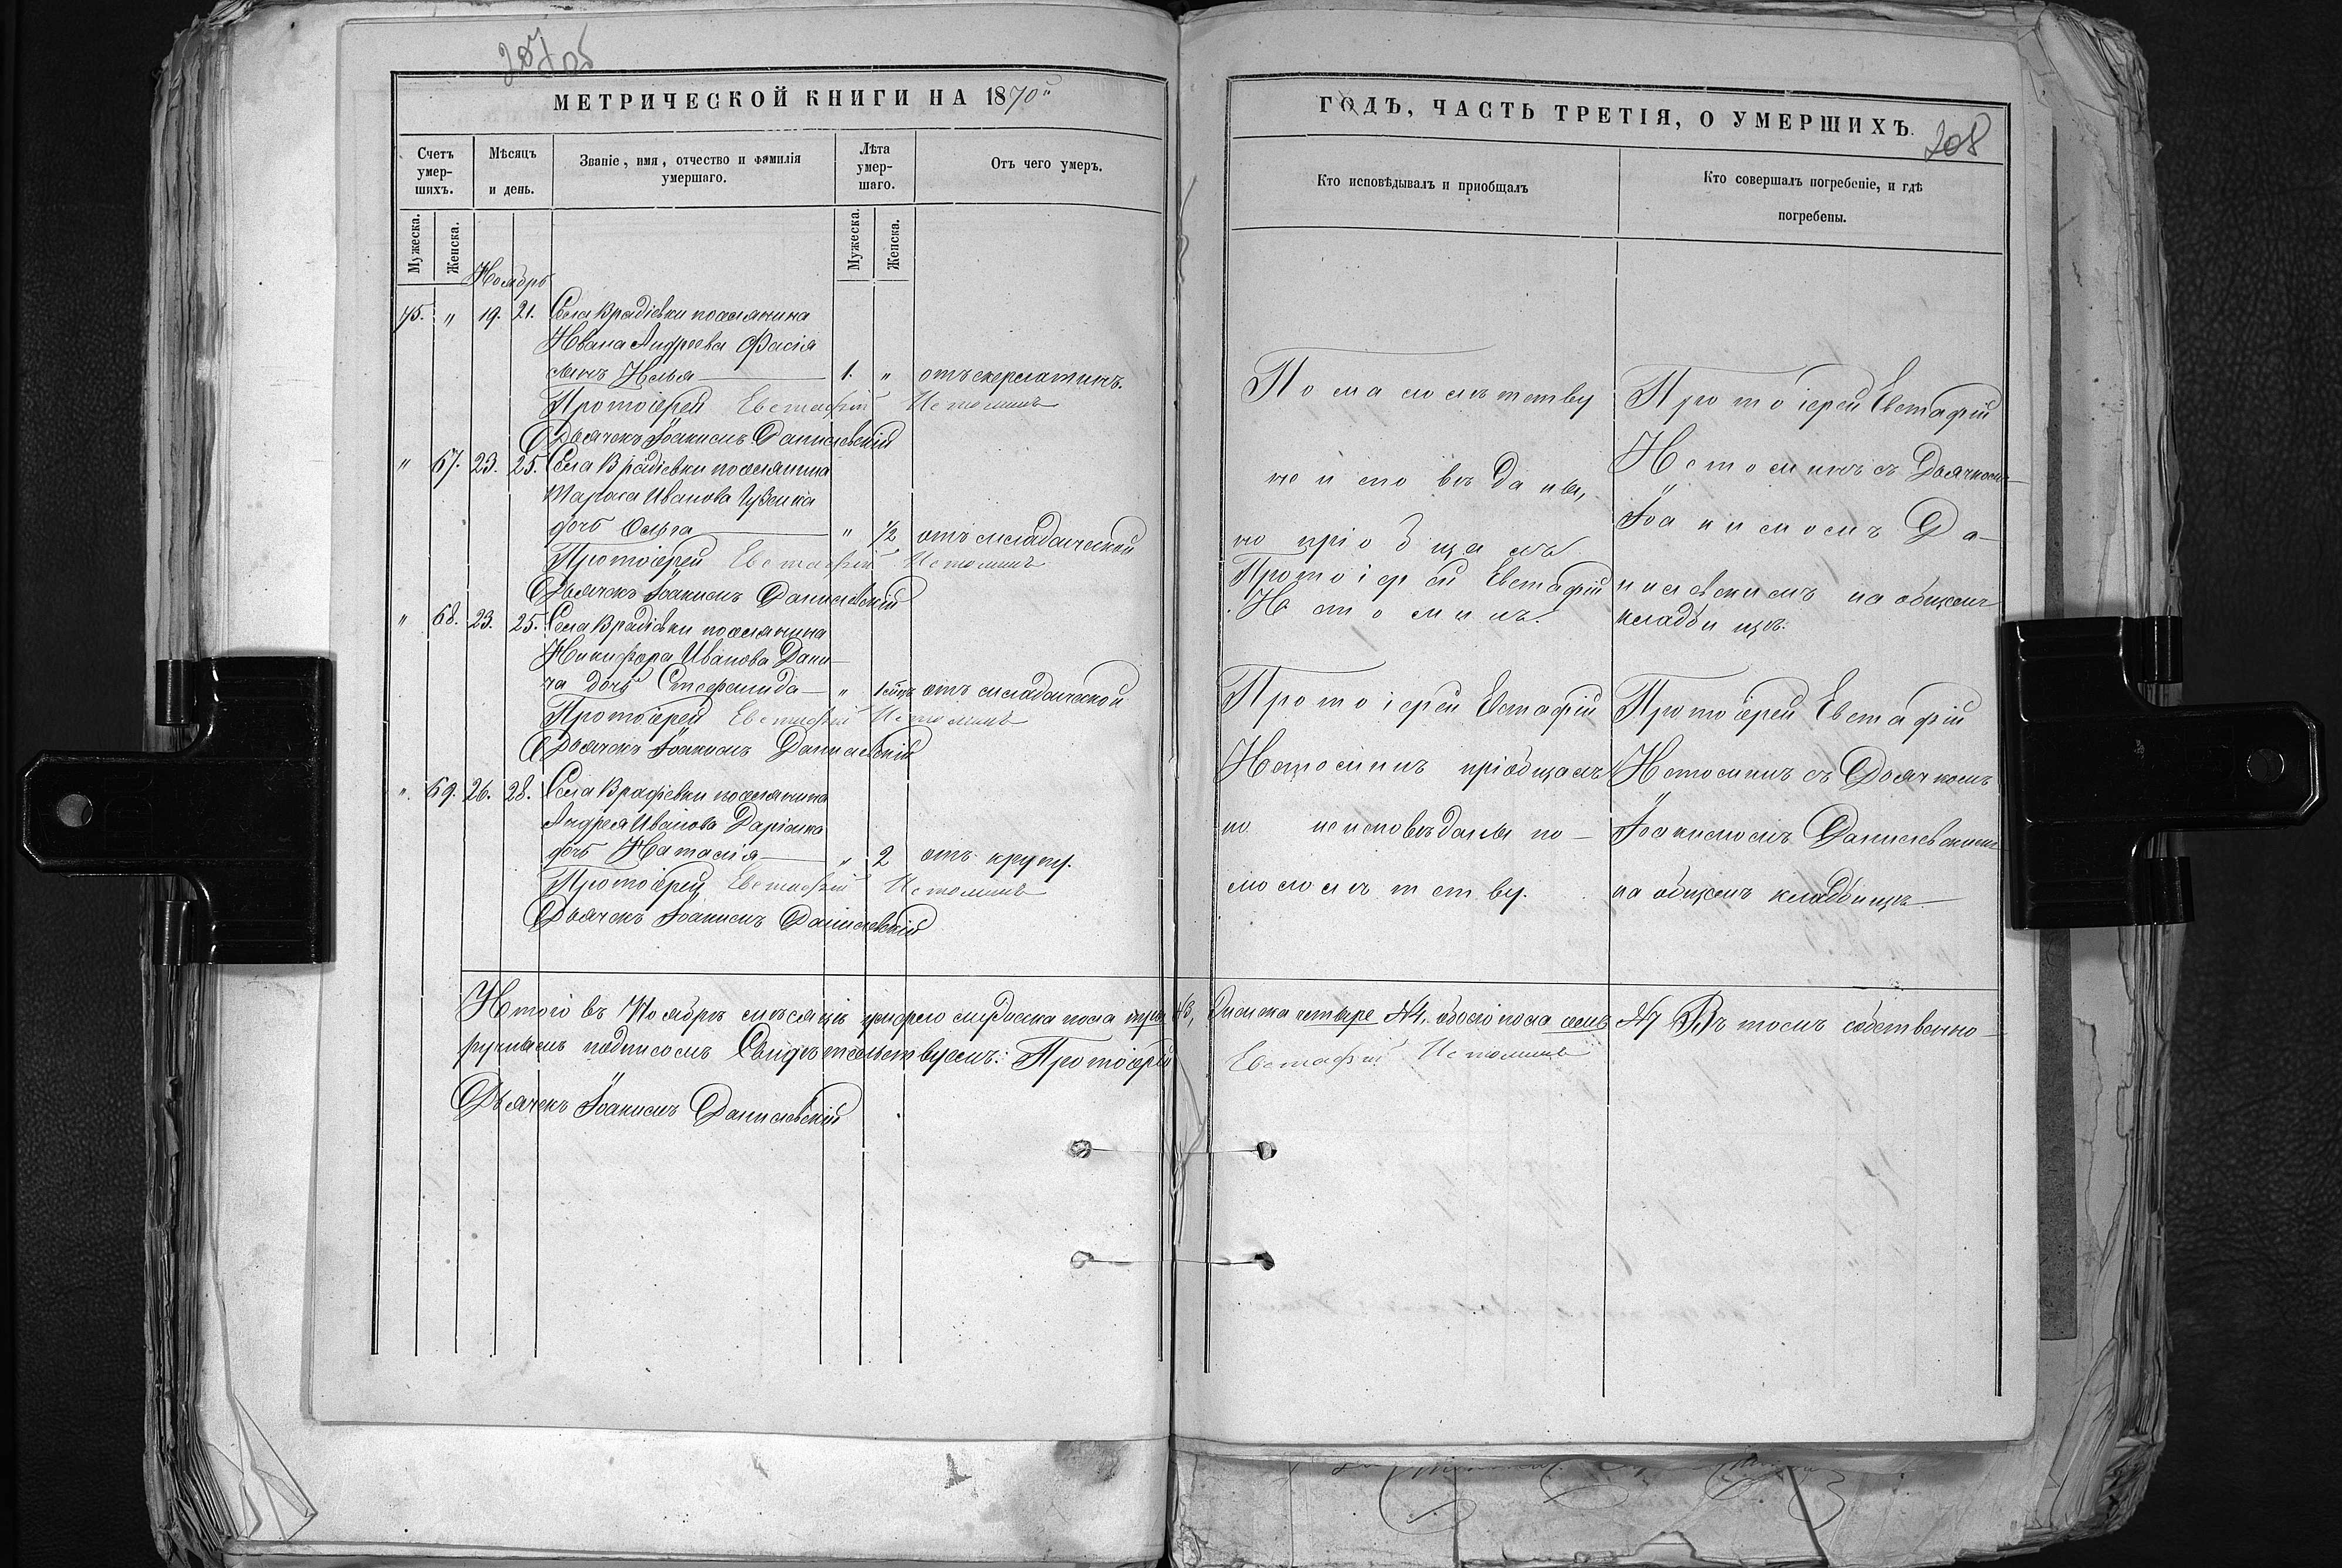 207 05
МЕТРИЧЕСКОЙ КНИГИ НА 1870й
Счетъ умер-шихъ.
Мѣсяцъ и день.
Званіе, имя, отчество и фамилія умершаго.
Лѣта умер-шаго.
Отъ чего умеръ.
Мужеска. Женска.
Мужеска. Женска.
Ноябрь
75. " 19. 21. Села Врадіевки поселянина
Ивана Андреева Фасія
сынъ Илья 1. " отъ скерлатинъ.
Протоіерей Евстафій Истоминъ
Дьячекъ Іоакимъ Данилевскій
" 67. 23. 25. Села Врадіевки поселянина
Тараса Иванова Гузенка
дочь Ольга " 1/2 отъ младенческой
Протоіерей Евстафій Истоминъ
Дьячекъ Іоакимъ Данилевскій
" 68. 23. 25. Села Врадіевки поселянина
Никифора Иванова Дани-
ча дочь Стефанида " отъ младенческой
Протоіерей Евстафій Истоминъ
Дьячекъ Іоакимъ Данилевскій
" 69. 26. 28. Села Врадіевки поселянина
Андрея Иванова Даріенка
дочь Наталія " 2 отъ крупу.
Протоіерей Евстафій Истоминъ
Дьячекъ Іоакимъ Данилевскій
Итого въ Ноябрѣ мѣсяцѣ умерло мужеска пола три №3,
ручнымъ подписомъ Свидѣтельствуемъ: Протоіерей
Дьячекъ Іоакимъ Данилевскій
ГОДЪ, ЧАСТЬ ТРЕТІЯ, О УМЕРШИХЪ.
208
Кто исповѣдывалъ и пріобщалъ
Кто совершалъ погребеніе, и гдѣ погребены.
По малолѣтству
не исповѣданы,
но пріобщалъ
Протоіерей Евстафій
Истоминъ.
Протоіерей Евстафій
Истоминъ пріобщалъ
но не исповѣданы по
малолѣтству.
Протоіерей Евстафій
Истоминъ съ Дьячкомъ
Іоакимомъ Да-
нилевскимъ на общемъ
кладбищѣ.
Протоіерей Евстафій
Истоминъ съ Дьячкомъ
Іоакимомъ Данилевскимъ
на общемъ кладбищѣ
женска четыре №4, обоего пола семь №7 Въ томъ собственно-
Евстафій Истоминъ